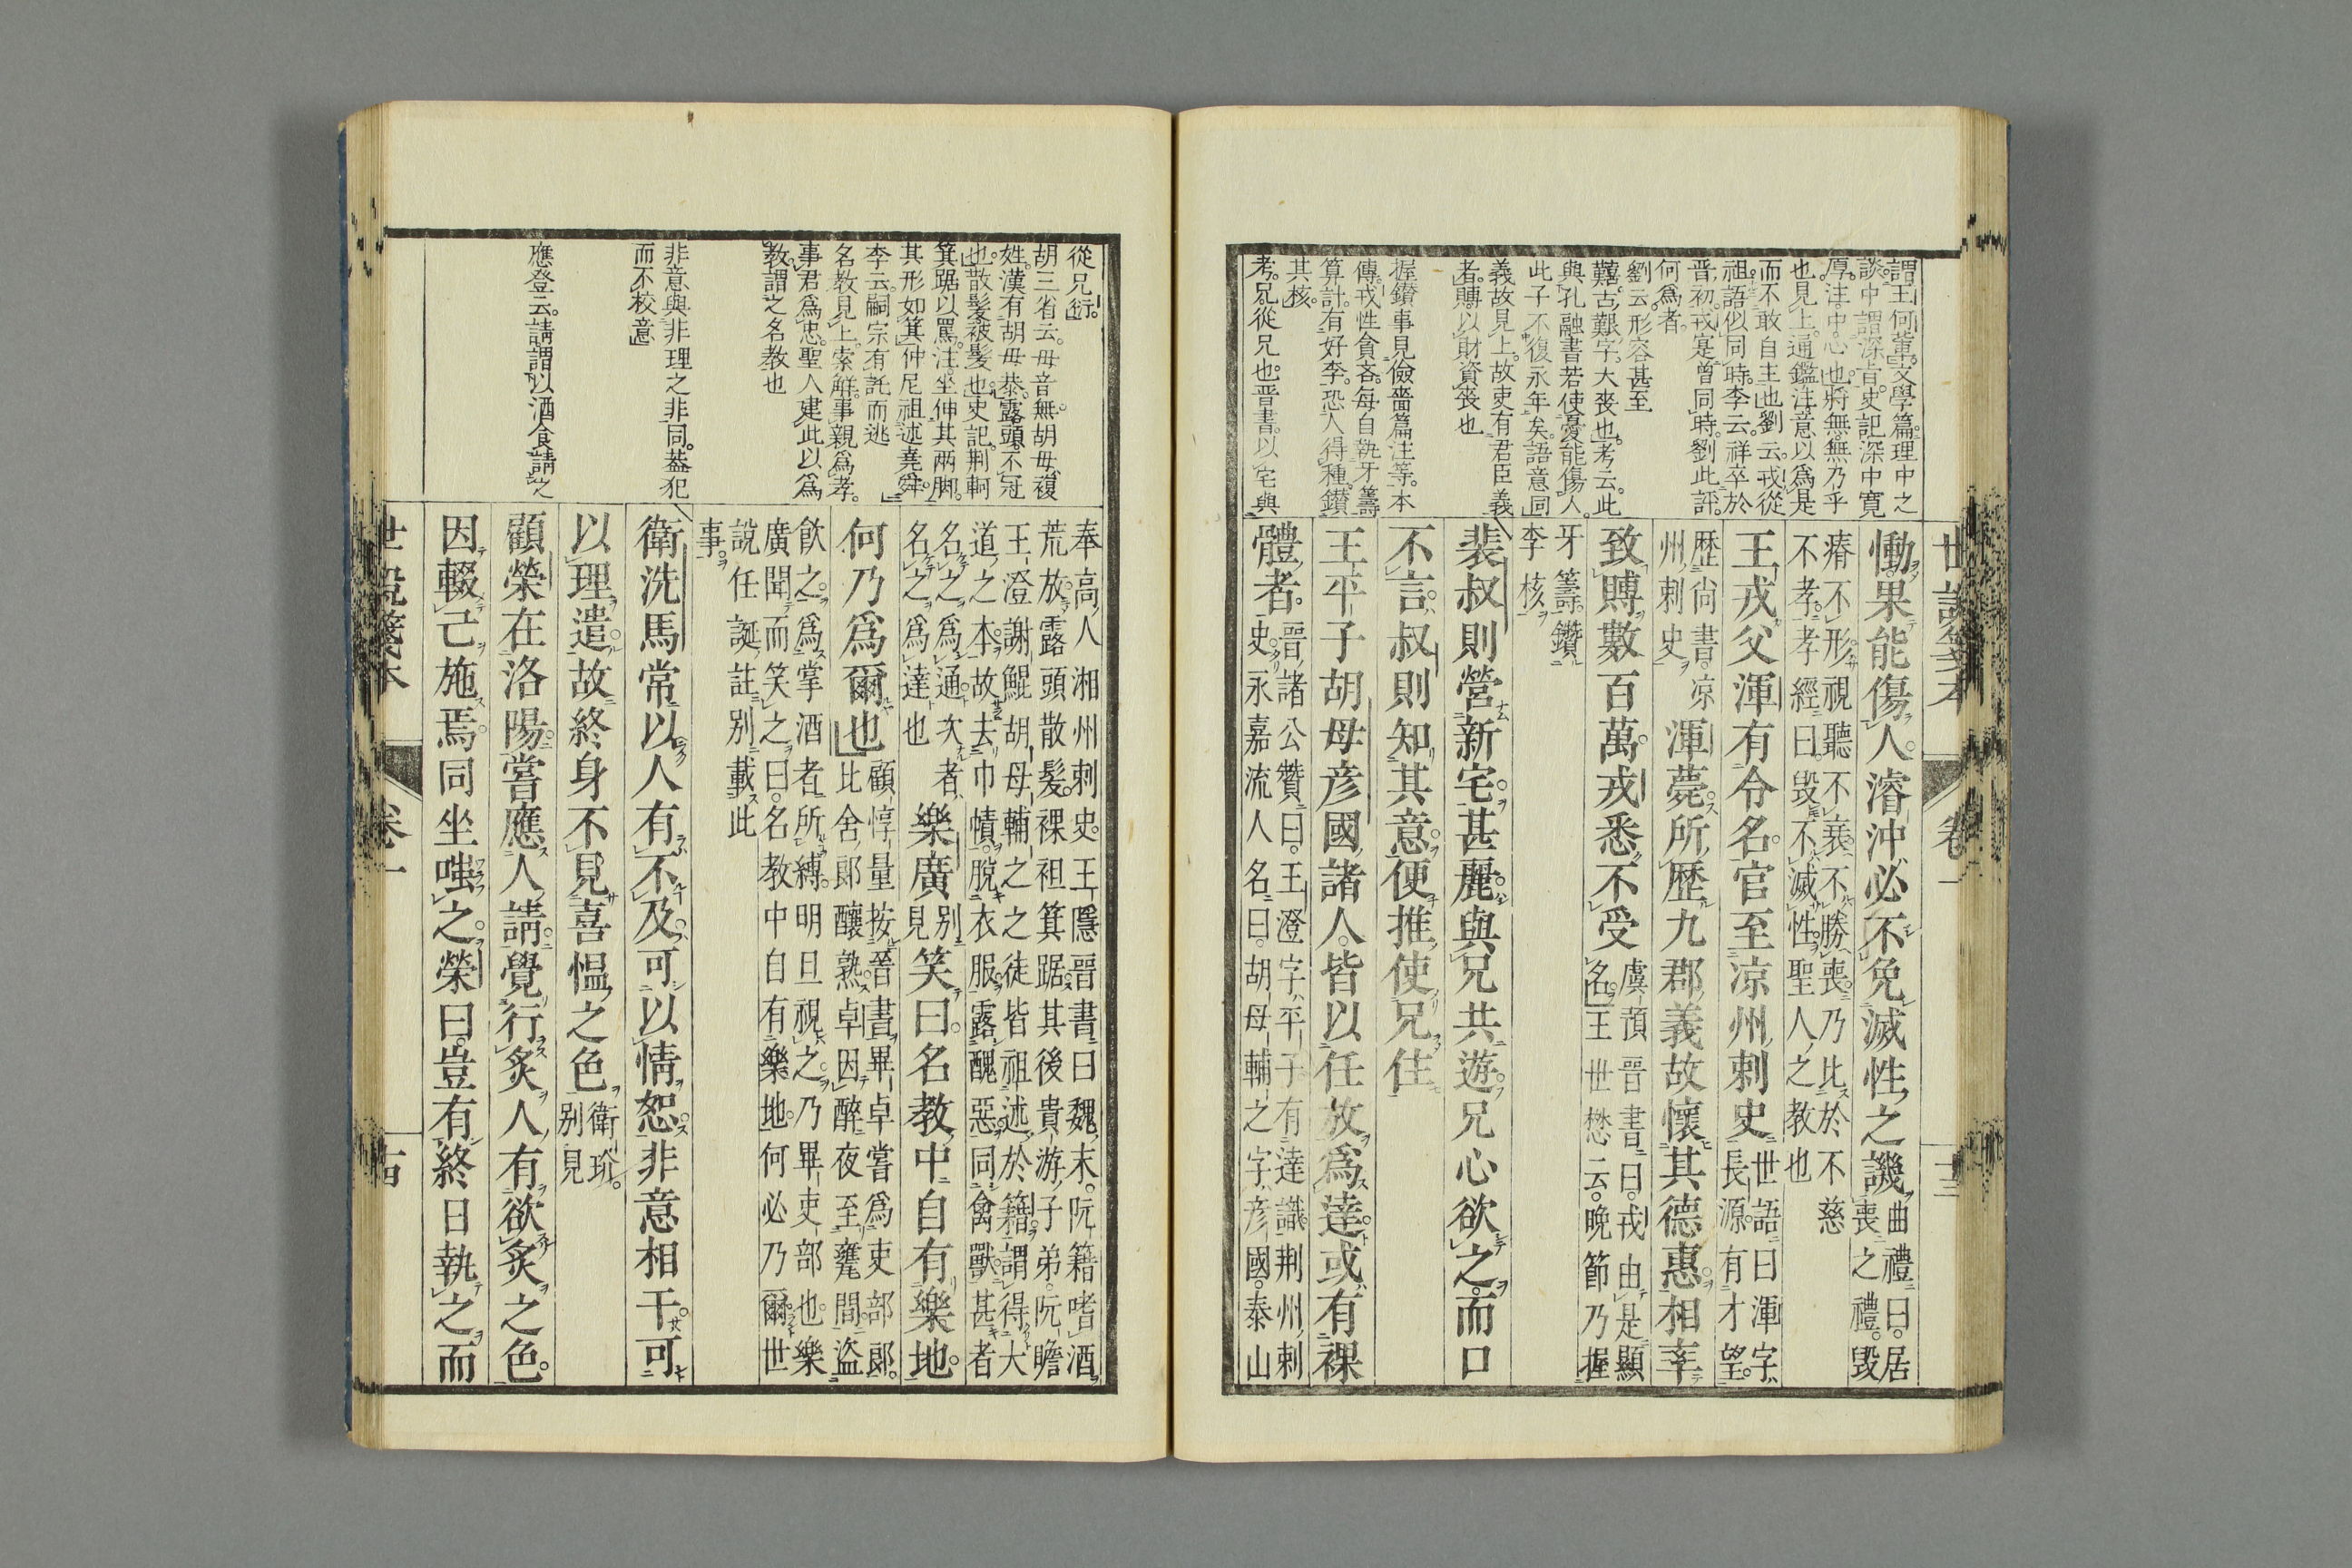 世說箋本
卷一
十三
謂王何輩文學篇理中之
談中謂深旨史記深中寬
厚注中心也將無無乃乎
也見上通鑑注意以爲是
而不敢自主也劉云戎從
祖語似同時李云祥卒於
晋初戎寔曾同時劉此評
何爲者
劉云形容甚至
囏古艱字大喪也考云此
與孔融書若使憂能傷人
此子不復永年矣語意同
義故見上故吏有君臣義
者賻以財資喪也
握鑚事見儉嗇篇注等本
傳戎性貪吝每自執牙籌
算計有好李恐人得種鑚
其核
考兄從兄也晋書以宅與
慟果能傷人濬沖必不免滅性之譏曲禮曰居
喪之禮毀
瘠不形視聽不衰不勝喪乃比於不慈
不孝孝經曰毀不滅性聖人之教也
王戎父渾有令名官至凉州刺史世語曰渾字
長源有才望
歷尚書凉
州刺史
渾薨所歷九郡義故懷其德惠相率
致賻數百萬戎悉不受虞預晉書曰戎由是顯
名王世懋云晚節乃握
牙籌鑽
李核
裴叔則營新宅甚麗與兄共遊兄心欲之而口
不言叔則知其意便推使兄住
王平子胡毋彦國諸人皆以任放爲達或有裸
體者晉諸公贊曰王澄字平子有達識荆州刺
史永嘉流人名曰胡毋輔之字彦國泰山
從兄衍
胡三省云毋音無胡毋複
姓漢有胡毋恭露頭不冠
也散髮被髮也史記荆軻
箕踞以罵注坐伸其两脚
其形如箕仲尼祖述堯舜
李云嗣宗有託而逃
名教見上索解事親爲孝
事君爲忠聖人建此以爲
教謂之名教也
非意與非理之非同葢犯
而不校意
應登云請謂以酒食請之
奉高人湘州刺史王隱晉書曰魏末阮籍嗜酒
荒放露頭散髮裸袒箕踞其後貴游子弟阮瞻
王澄謝鯤胡毋輔之之徒皆祖述於籍謂得大
道之本故去巾幘脫衣服露醜惡同禽獸甚者
名之爲通次者
名之爲達也
樂廣別
見笑曰名教中自有樂地
何乃爲爾也顧惇量按晉書畢卓嘗爲吏部郎
比舍郎釀熟卓因醉夜至甕間盜
飲之爲掌酒者所縛明旦視之乃畢吏部也樂
廣聞而笑之曰名教中自有樂地何必乃爾世
說任誕註別載此
事
衛洗馬常以人有不及可以情恕非意相干可
以理遣故終身不見喜慍之色衛玠
別見
顧榮在洛陽嘗應人請覺行炙人有欲炙之色
因輟己施焉同坐嗤之榮曰豈有終日執之而
世說箋本
卷一
十四